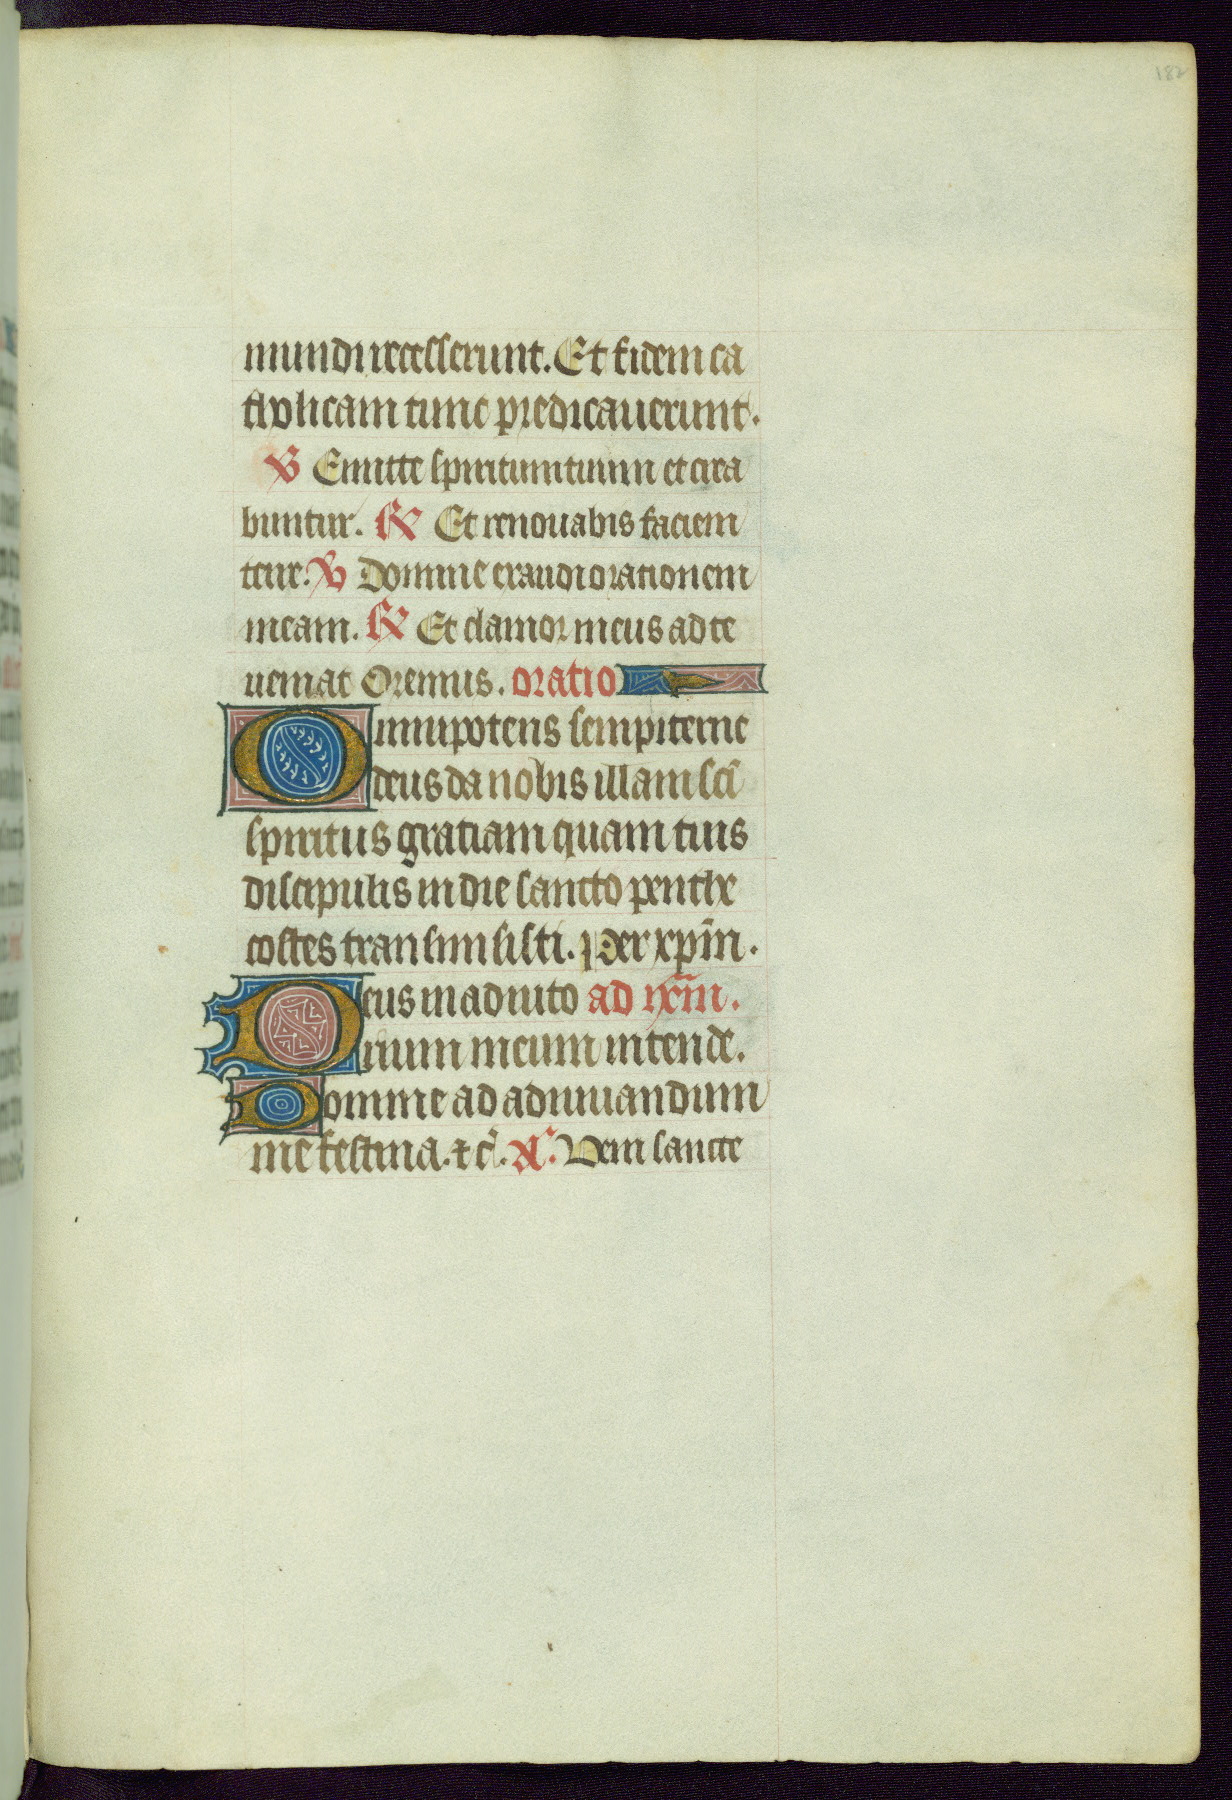 182
mundi recesserunt. Et fidem ca
tholicam tunc predicauerunt.
℣ Emitte spiritum tuum et crea
buntur. ℟ Et renouabis faciem
terre. ℣ Domine exaudi orationem
meam. ℟ Et clamor meus ad te
ueniat Oremus. oratio
Omnipotens sempiterne
deus da nobis illam sc̄i
spiritus gratiam quam tuis
discipulis in die sancto penthe
costes transmisisti. Per xp̄m.
Deus in adiuto ad ix̄m.
rium meum intende.
Domine ad adiuuandum
me festina. ⁊ c̄. A̕. Veni sancte